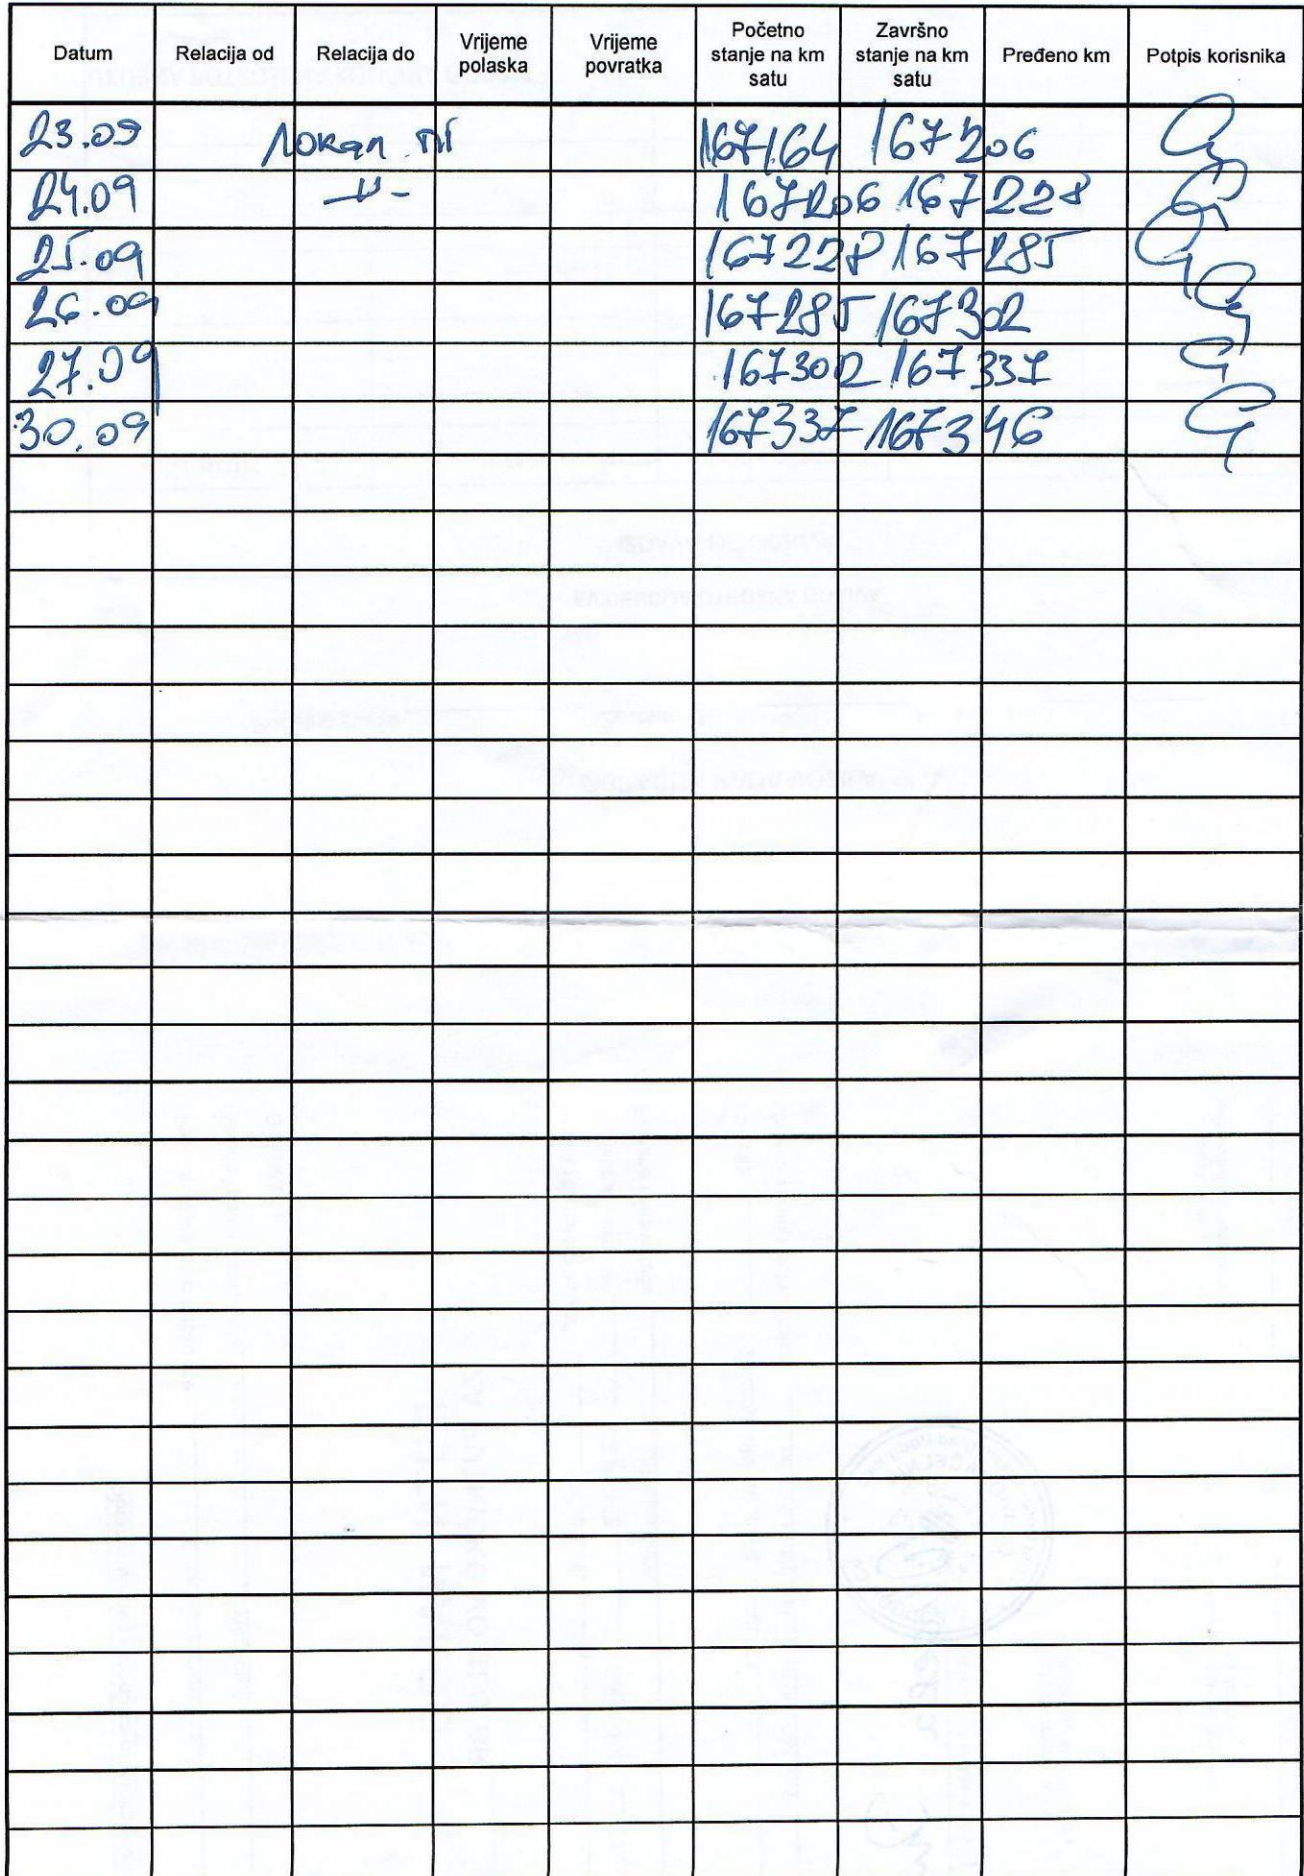 Datum Relacija od Relacija do Vrijeme polaska Vrijeme povratka Početno stanje na km satu Završno stanje na km satu Pređeno km Potpis korisnika
23.09 Локал 167164 167206
24.09 -||- 167206 167228
25.09 167228 167285
26.09 167285 167302
27.09 167302 167337
30.09 167337 167346